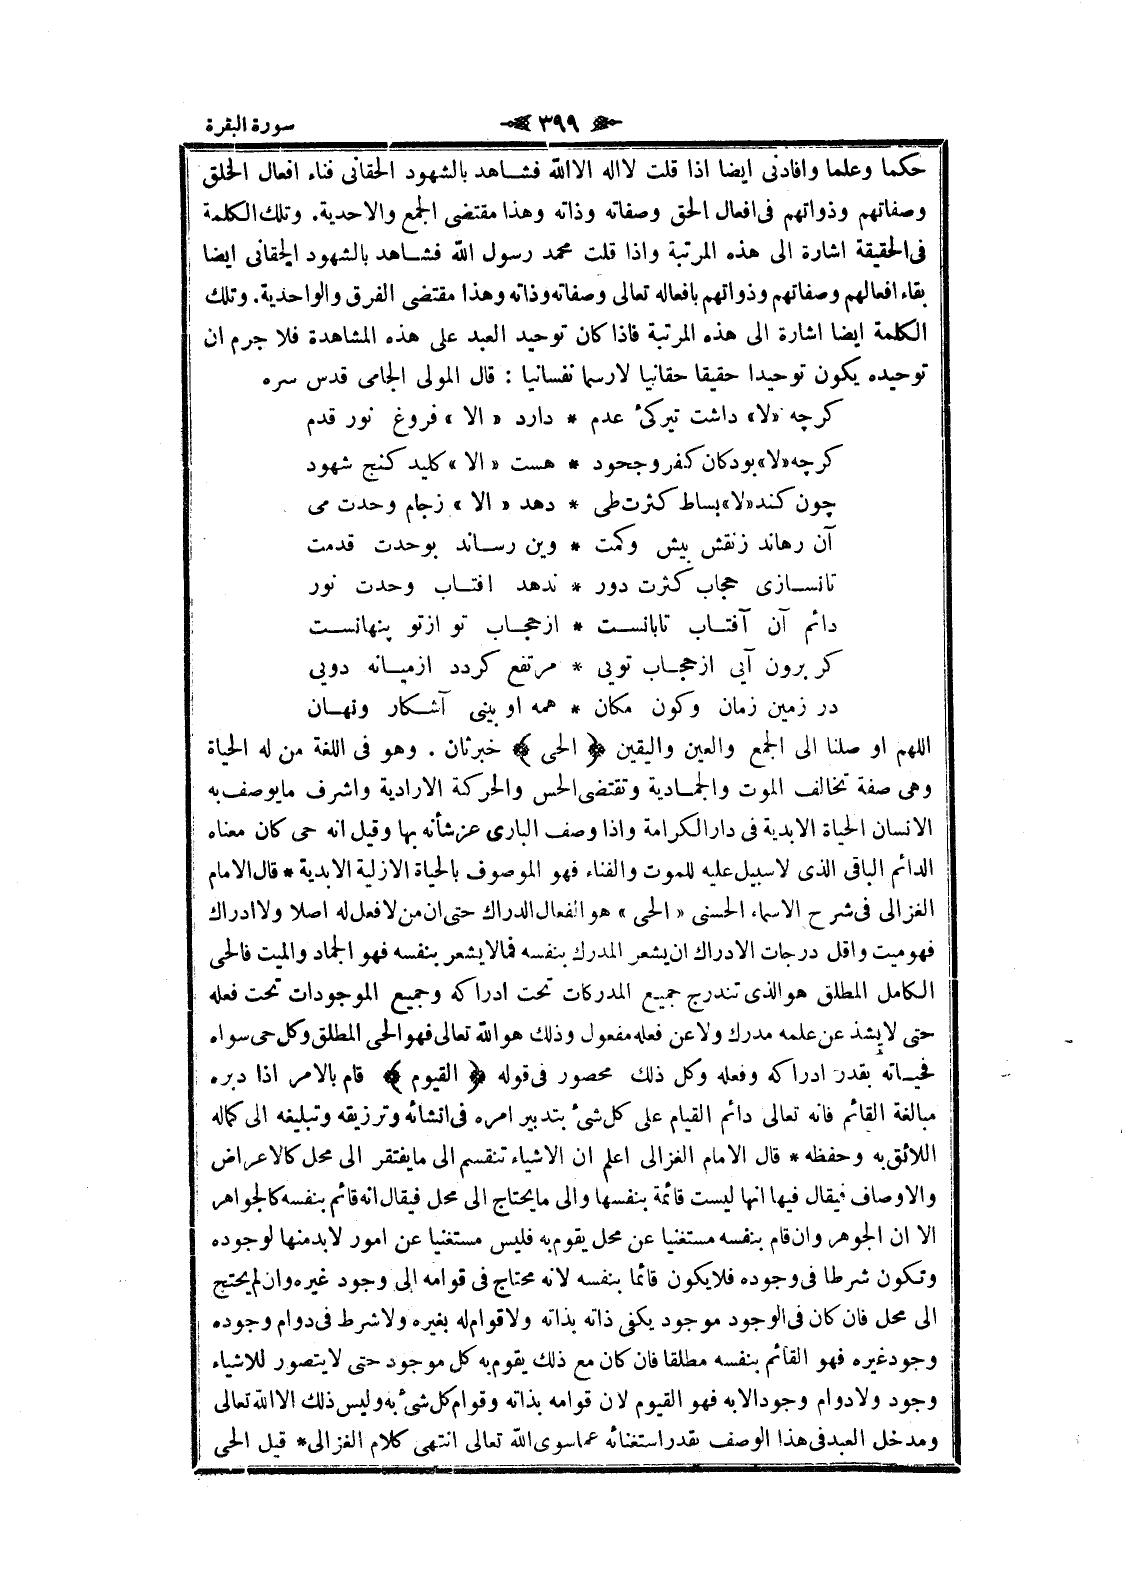 سورة البقرة
٣٩٩
حكما وعلما وافادنى ايضا اذا قلت لااله الاالله فشاهد بالشهود الحقانى فناء افعال الخلق
وصفاتهم وذواتهم فى افعال الحق وصفاته وذاته وهذا مقتضى الجمع والاحدية. وتلك الكلمة
فى الحقيقة اشارة الى هذه المرتبة واذا قلت محمد رسول الله فشاهد بالشهود الحقانى ايضا
بقاء افعالهم وصفاتهم وذواتهم بافعاله تعالى وصفاته وذاته وهذا مقتضى الفرق والواحدية. وتلك
الكلمة ايضا اشارة الى هذه المرتبة فاذا كان توحيد العبد على هذه المشاهدة فلا جرم ان
توحيده يكون توحيدا حقيقا حقانيا لارسما نفسانيا : قال المولى الجامى قدس سره
كرچه «لا» داشت تيركئ عدم * دارد « الا » فروغ نور قدم
كرچه «لا» بودكان كفر وجحود * هست « الا » كليد كنج شهود
چون كند «لا» بساط كثرت طى * دهد « الا » زجام وحدت مى
آن رهاند زنقش بيش وكمت * وين رساند بوحدت قدمت
تانسازى حجاب كثرت دور * ندهد افتاب وحدت نور
دائم آن آفتاب تابانست * ازحجاب تو ازتو پنهانست
كر برون آيى ازحجاب تويى * مرتفع كردد ازميانه دويى
در زمين زمان وكون مكان * همه او بينى آشكار ونهان
اللهم او صلنا الى الجمع والعين واليقين ﴿ الحى ﴾ خبرثان . وهو فى اللغة من له الحياة
وهى صفة تخالف الموت والجمادية وتقتضى الحس والحركة الارادية واشرف مايوصف به
الانسان الحياة الابدية فى دارالكرامة واذا وصف البارى عزشأنه بها وقيل انه حى كان معناه
الدائم الباقى الذى لاسبيل عليه للموت والفناء فهو الموصوف بالحياة الازلية الابدية * قال الامام
الغزالى فى شرح الاسماء الحسنى « الحى » هو الفعال الدراك حتى ان من لافعل له اصلا ولاادراك
فهوميت واقل درجات الادراك ان يشعر المدرك بنفسه فمالايشعر بنفسه فهو الجماد والميت فالحى
الكامل المطلق هوالذى تندرج جميع المدركات تحت ادراكه وجميع الموجودات تحت فعله
حتى لايشذ عن علمه مدرك ولاعن فعله مفعول وذلك هوالله تعالى فهو الحى المطلق وكل حى سواه
فحياته بقدر ادراكه وفعله وكل ذلك محصور فى قوله ﴿ القيوم ﴾ قام بالامر اذا دبره
مبالغة القائم فانه تعالى دائم القيام على كل شئ بتدبير امره فى انشائه وترزيقه وتبليغه الى كماله
اللائق به وحفظه * قال الامام الغزالى اعلم ان الاشياء تنقسم الى مايفتقر الى محل كالاعراض
والاوصاف فيقال فيها انها ليست قائمة بنفسها والى مايحتاج الى محل فيقال انه قائم بنفسه كالجواهر
الا ان الجوهر وان قام بنفسه مستغنيا عن محل يقوم به فليس مستغنيا عن امور لابدمنها لوجوده
وتكون شرطا فى وجوده فلايكون قائما بنفسه لانه محتاج فى قوامه الى وجود غيره وان لم يحتج
الى محل فان كان فى الوجود موجود يكفى ذاته بذاته ولاقوام له بغيره ولاشرط فى دوام وجوده
وجودغيره فهو القائم بنفسه مطلقا فان كان مع ذلك يقوم به كل موجود حتى لايتصور للاشياء
وجود ولادوام وجودالابه فهو القيوم لان قوامه بذاته وقوام كل شئ به وليس ذلك الاالله تعالى
ومدخل العبدفى هذا الوصف بقدر استغنائه عماسوى الله تعالى انتهى كلام الغزالى * قيل الحى